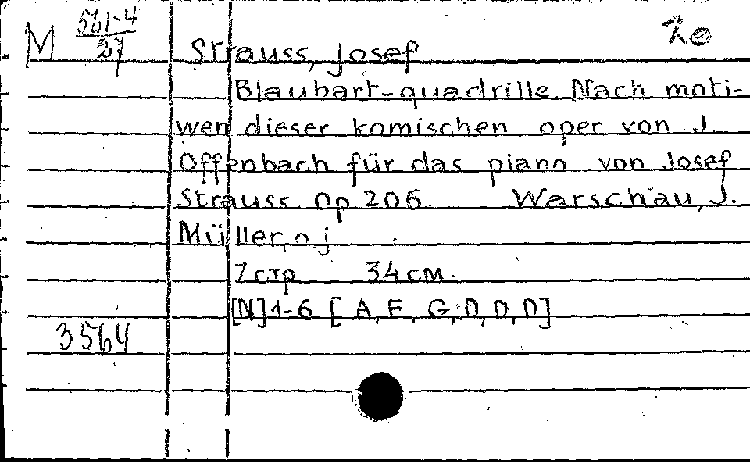 M 561-4/27
Strauss, Josef
Blaubart-quadrille. Nach moti-
wen dieser komischen oper von J.
Offenbach für das piano von Josef
Strauss. Op 206. Warschau, J.
Müller, o j.
7 стр 34 см.
[N] 1-6 [A, E, G, D, D, D]
3564